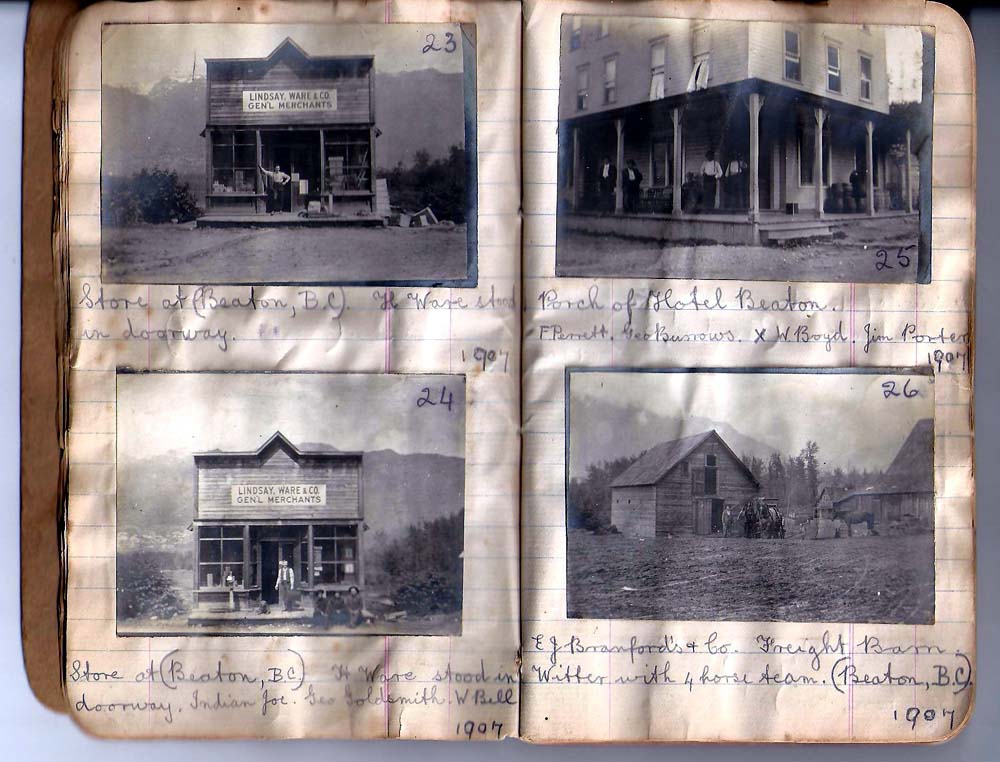 23
LINDSAY, WARE & CO.
GEN'L MERCHANTS
Store at (Beaton, B.C). H Ware stood
in doorway.
1907
24
LINDSAY, WARE & CO.
GEN'L MERCHANTS
Store at (Beaton, BC) H Ware stood in
doorway. Indian Joe. Geo Goldsmith. W Bell
1907
25
Porch of Hotel Beaton.
F Perrett. Geo Burrows. X W Boyd. Jim Porter
1907
26
E J Branford's & Co. Freight Barn.
Witter with 4 horse team. (Beaton, B.C).
1907